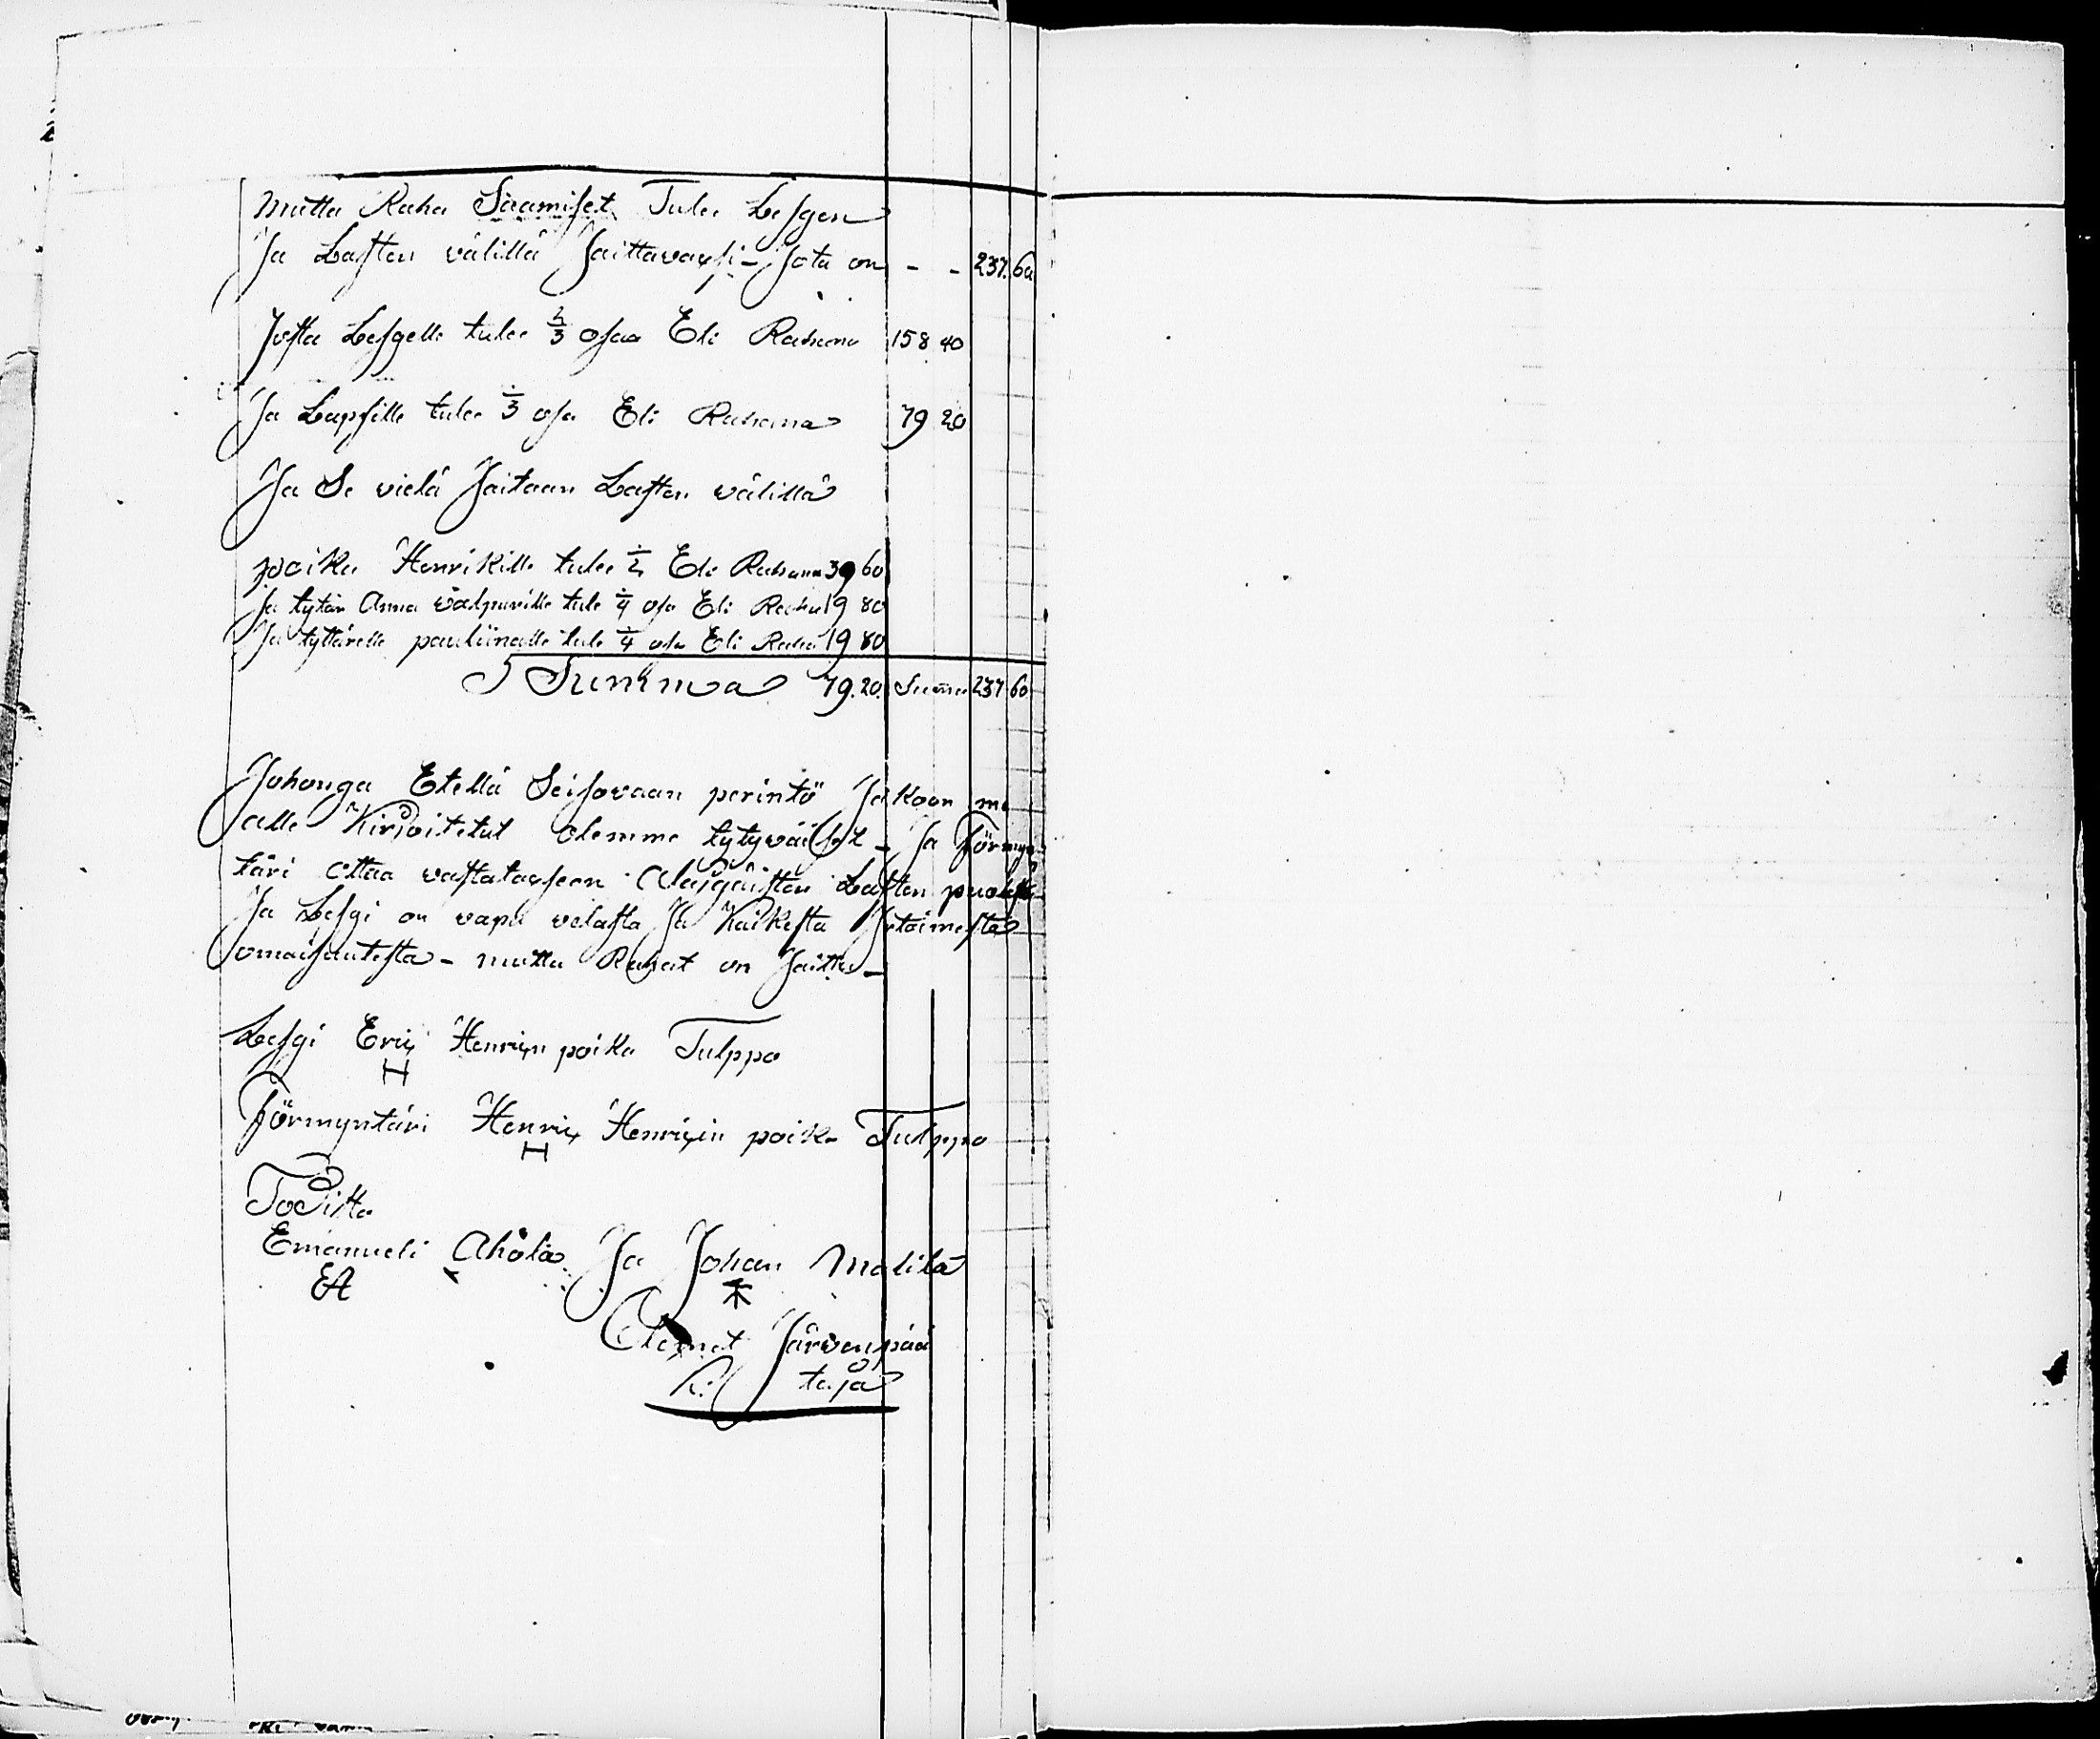 mutta Raha Saamiset Tulee Lesgen
Ja Lasten välillä Jaittavaxsi - Jota on - - 237. 60
Josta Lesgelle tulee 2/3 osaa Eli Rahana 158 40
Ja Lapsille tulee 1/3 osa Eli Rahana 79 20
Ja Se vielä Jaitaan Lasten välillä
poika Henrikille tulee 1/2 Eli Rahana 39 60
Ja tytär Anna Valpurille tule 1/4 osa Eli Raha 19 80
Ja tyttärelle pauliinalle tule 1/4 osa Eli Raha 19 80
Summa 79. 20. Summa 237 60
Johonga Etellä Seisovaan perintö Jakoon me
alle Kirjoitetut olemme tytyväiset - Ja Förmyn
täri ottaa vastataxseen Alaigäisten Lasten puolesta
Ja Lesgi on vapa velasta Ja Kaikesta Irtoimesta
omaisuutesta - mutta Rahat on Jaittu -
Lesgi Erix Henrixn poika Tulppo
H
Förmyntäri Henrix Henrixin poika Tulppo
H
Todista
Emanueli Ahola Ja Johan Matila
EA
Clemet Järvenpää
K: taja